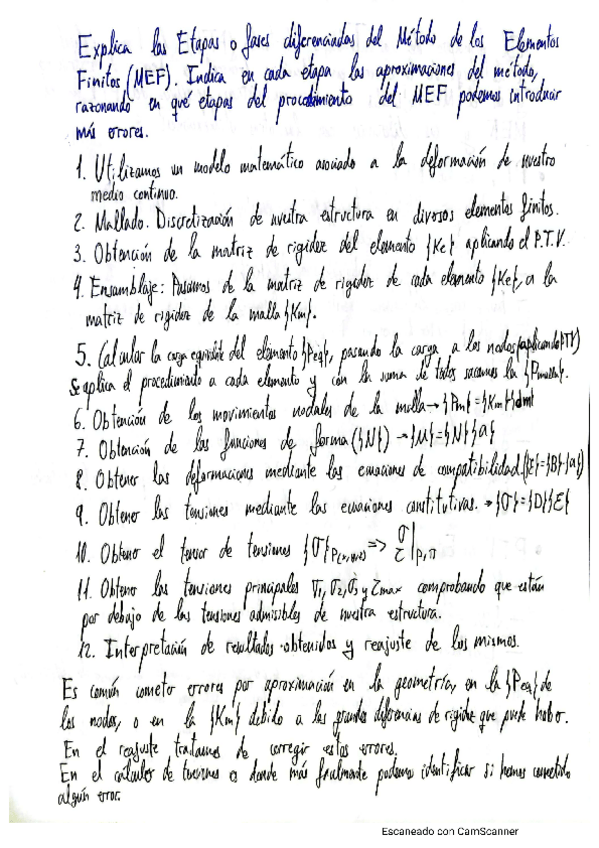 Explica las Etapas o fases diferenciadas del Método de los Elementos
Finitos (MEF). Indica en cada etapa las aproximaciones del método,
razonando en qué etapas del procedimiento del MEF podemos introducir
más errores.
1. Utilizamos un modelo matemático asociado a la deformación de nuestro
medio continuo.
2. Mallado. Discretización de nuestra estructura en diversos elementos finitos.
3. Obtención de la matriz de rigidez del elemento {Ke} aplicando el P.T.V.
4. Ensamblaje: Pasamos de la matriz de rigidez de cada elemento {Ke}, a la
matriz de rigidez de la malla {Km}.
5. Calcular la carga equivalente del elemento {Peq}, pasando la carga a los nodos (aplicando PTV)
Se aplica el procedimiento a cada elemento y con la suma de todos sacamos la {Pmalla}.
6. Obtención de los movimientos nodales de la malla → {Pm} = {Km}{dm}
7. Obtención de las funciones de forma ({N}) → {u} = {N}{a}
8. Obtener las deformaciones mediante las ecuaciones de compatibilidad. ({ε} = {B}{a})
9. Obtener las tensiones mediante las ecuaciones constitutivas. → {σ} = {D}{ε}
10. Obtener el tensor de tensiones {σ} => σ τ | P, π
11. Obtener las tensiones principales σ1, σ2, σ3 y τmax comprobando que están
por debajo de las tensiones admisibles de nuestra estructura.
12. Interpretación de resultados obtenidos y reajuste de los mismos.
Es común cometer errores por aproximación en la geometría, en la {Peq} de
los nodos, o en la {Km} debido a las grandes diferencias de rigidez que puede haber.
En el reajuste tratamos de corregir estos errores.
En el cálculo de tensiones es donde más fácilmente podemos identificar si hemos cometido
algún error.
Escaneado con CamScanner